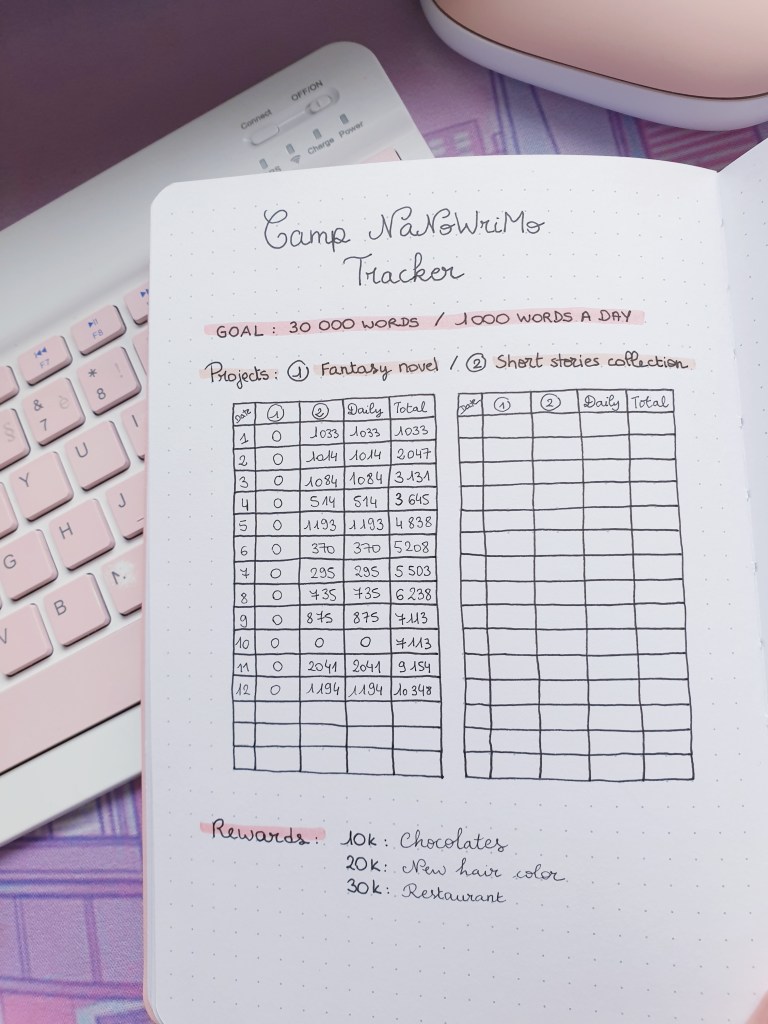 Connect OFF/ON
Charge Power
F7 F8
& 7 è * 8 !
§
Y U I
G H J
V B
Camp NaNoWriMo
Tracker
GOAL : 30 000 WORDS / 1000 WORDS A DAY
Projects : ① Fantasy novel / ② Short stories collection
Date ① ② Daily Total Date ① ② Daily Total
1 0 1033 1033 1033
2 0 1014 1014 2047
3 0 1084 1084 3 131
4 0 514 514 3 645
5 0 1193 1193 4 838
6 0 370 370 5208
7 0 295 295 5 503
8 0 735 735 6 238
9 0 875 875 7 113
10 0 0 0 7113
11 0 2041 2041 9 154
12 0 1194 1194 10 348
Rewards : 10k : Chocolates
20k : New hair color
30k : Restaurant